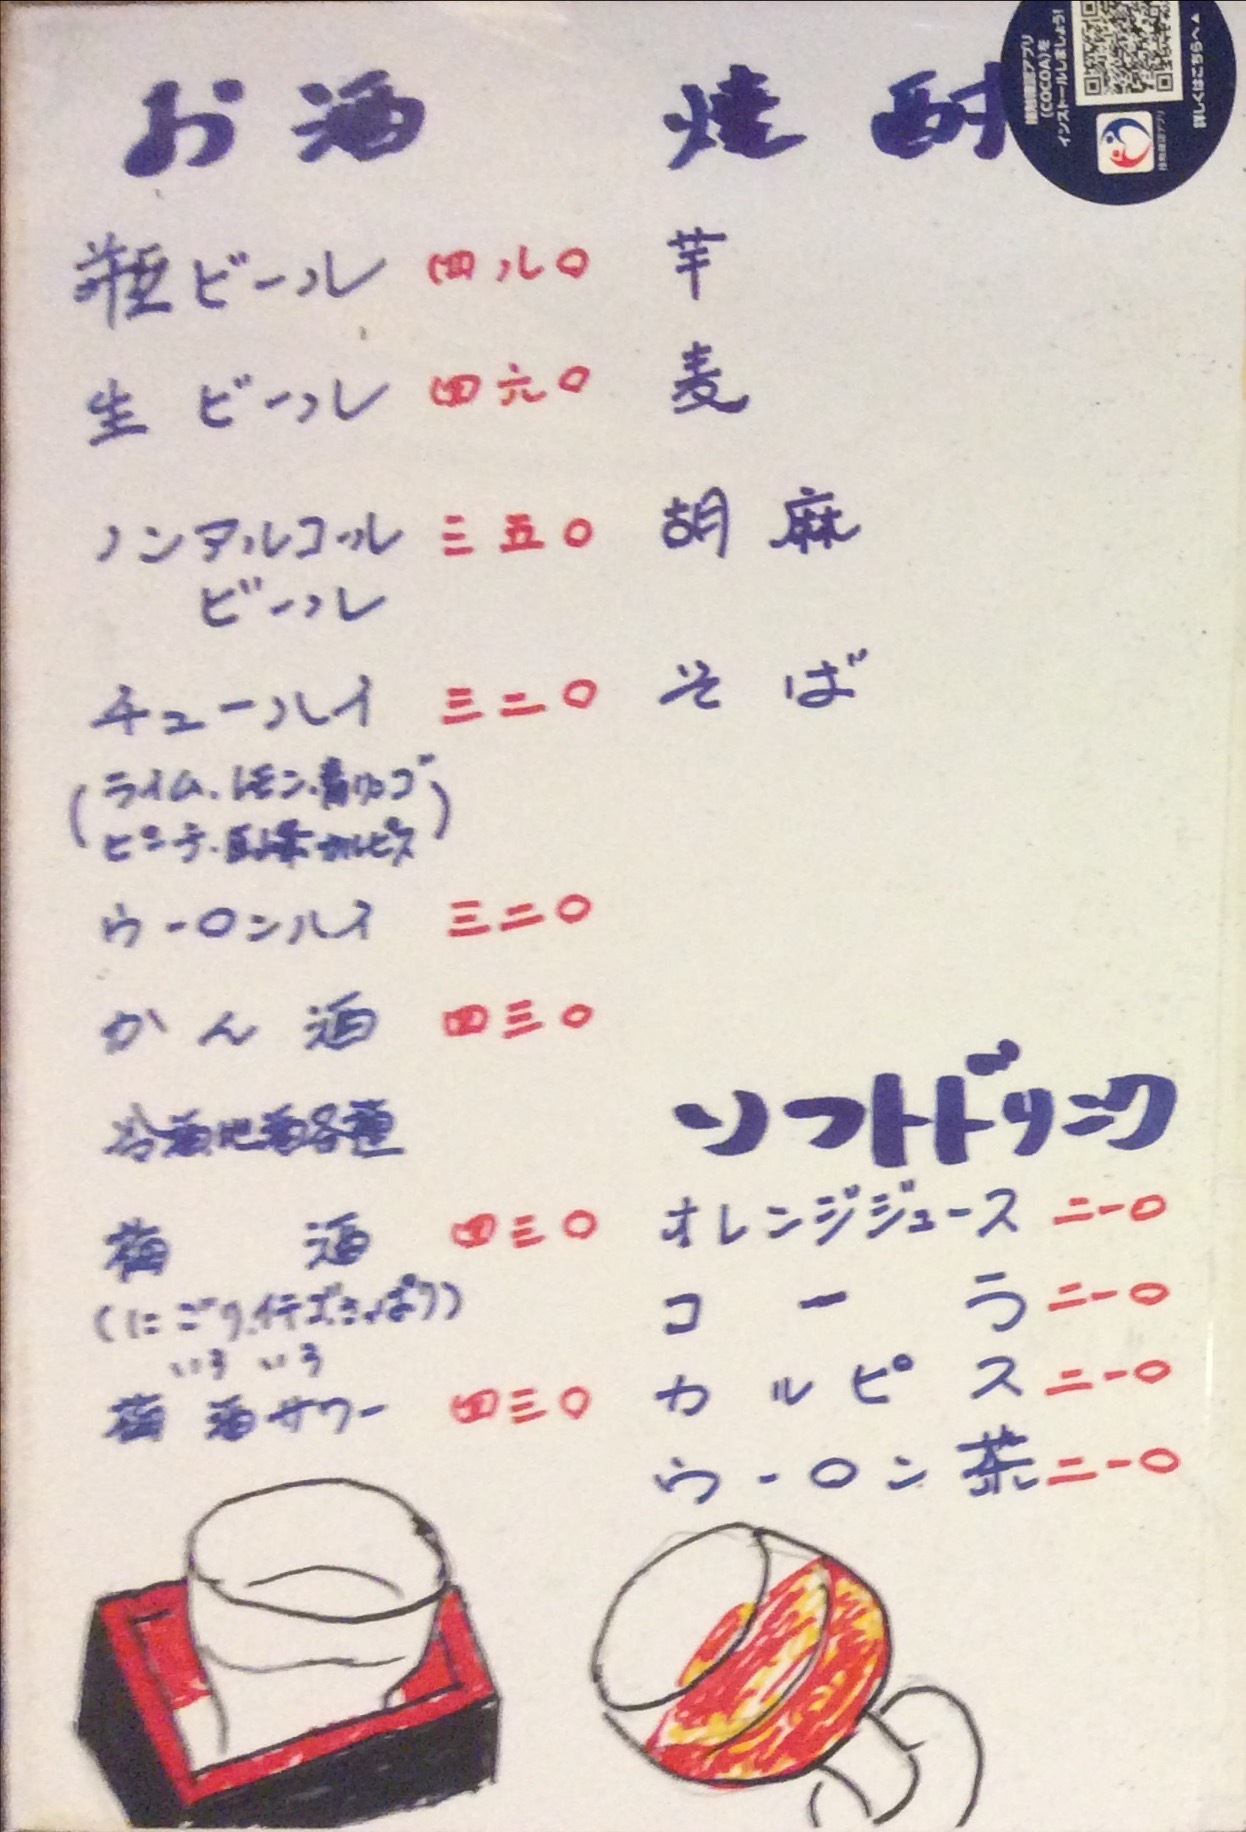 お酒
瓶ビール 四八〇
生ビール 四六〇
ノンアルコール 三五〇
ビール
チューハイ 三二〇
(ライム、レモン、青リンゴ
ピーチ、巨峰、カルピス)
ウーロンハイ 三二〇
かん酒 四三〇
冷酒地酒各種
梅酒 四三〇
(にごり、さっぱり)
いろいろ
梅酒サワー 四三〇
焼酎
芋
麦
胡麻
そば
ソフトドリンク
オレンジジュース 二一〇
コーラ 二一〇
カルピス 二一〇
ウーロン茶 二一〇
接触確認アプリ
(COCOA)を
インストールしましょう!
接触確認アプリ
詳しくはこちらへ▲